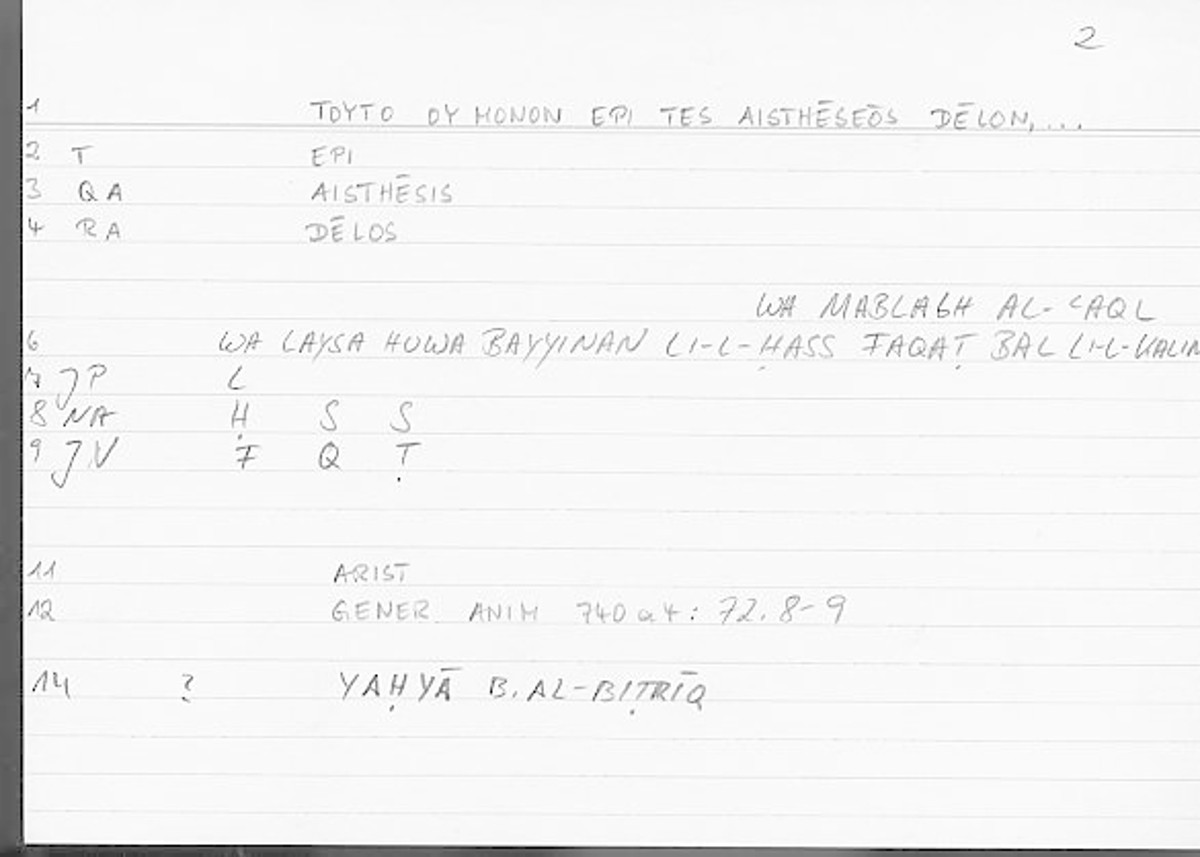 2
1 TOYTO OY MONON EPI TES AISTHĒSEŌS DĒLON, ...
2 T EPI
3 QA AISTHĒSIS
4 RA DĒLOS
WA MABLAGH AL-ʿAQL
6 WA LAYSA HUWA BAYYINAN LI-L-ḤASS FAQAṬ BAL LI-L-KALIM
7 JP L
8 NA Ḥ S S
9 JV F Q Ṭ
11 ARIST
12 GENER. ANIM 740a4: 72.8-9
14 ? YAḤYĀ B. AL-BIṬRĪQ